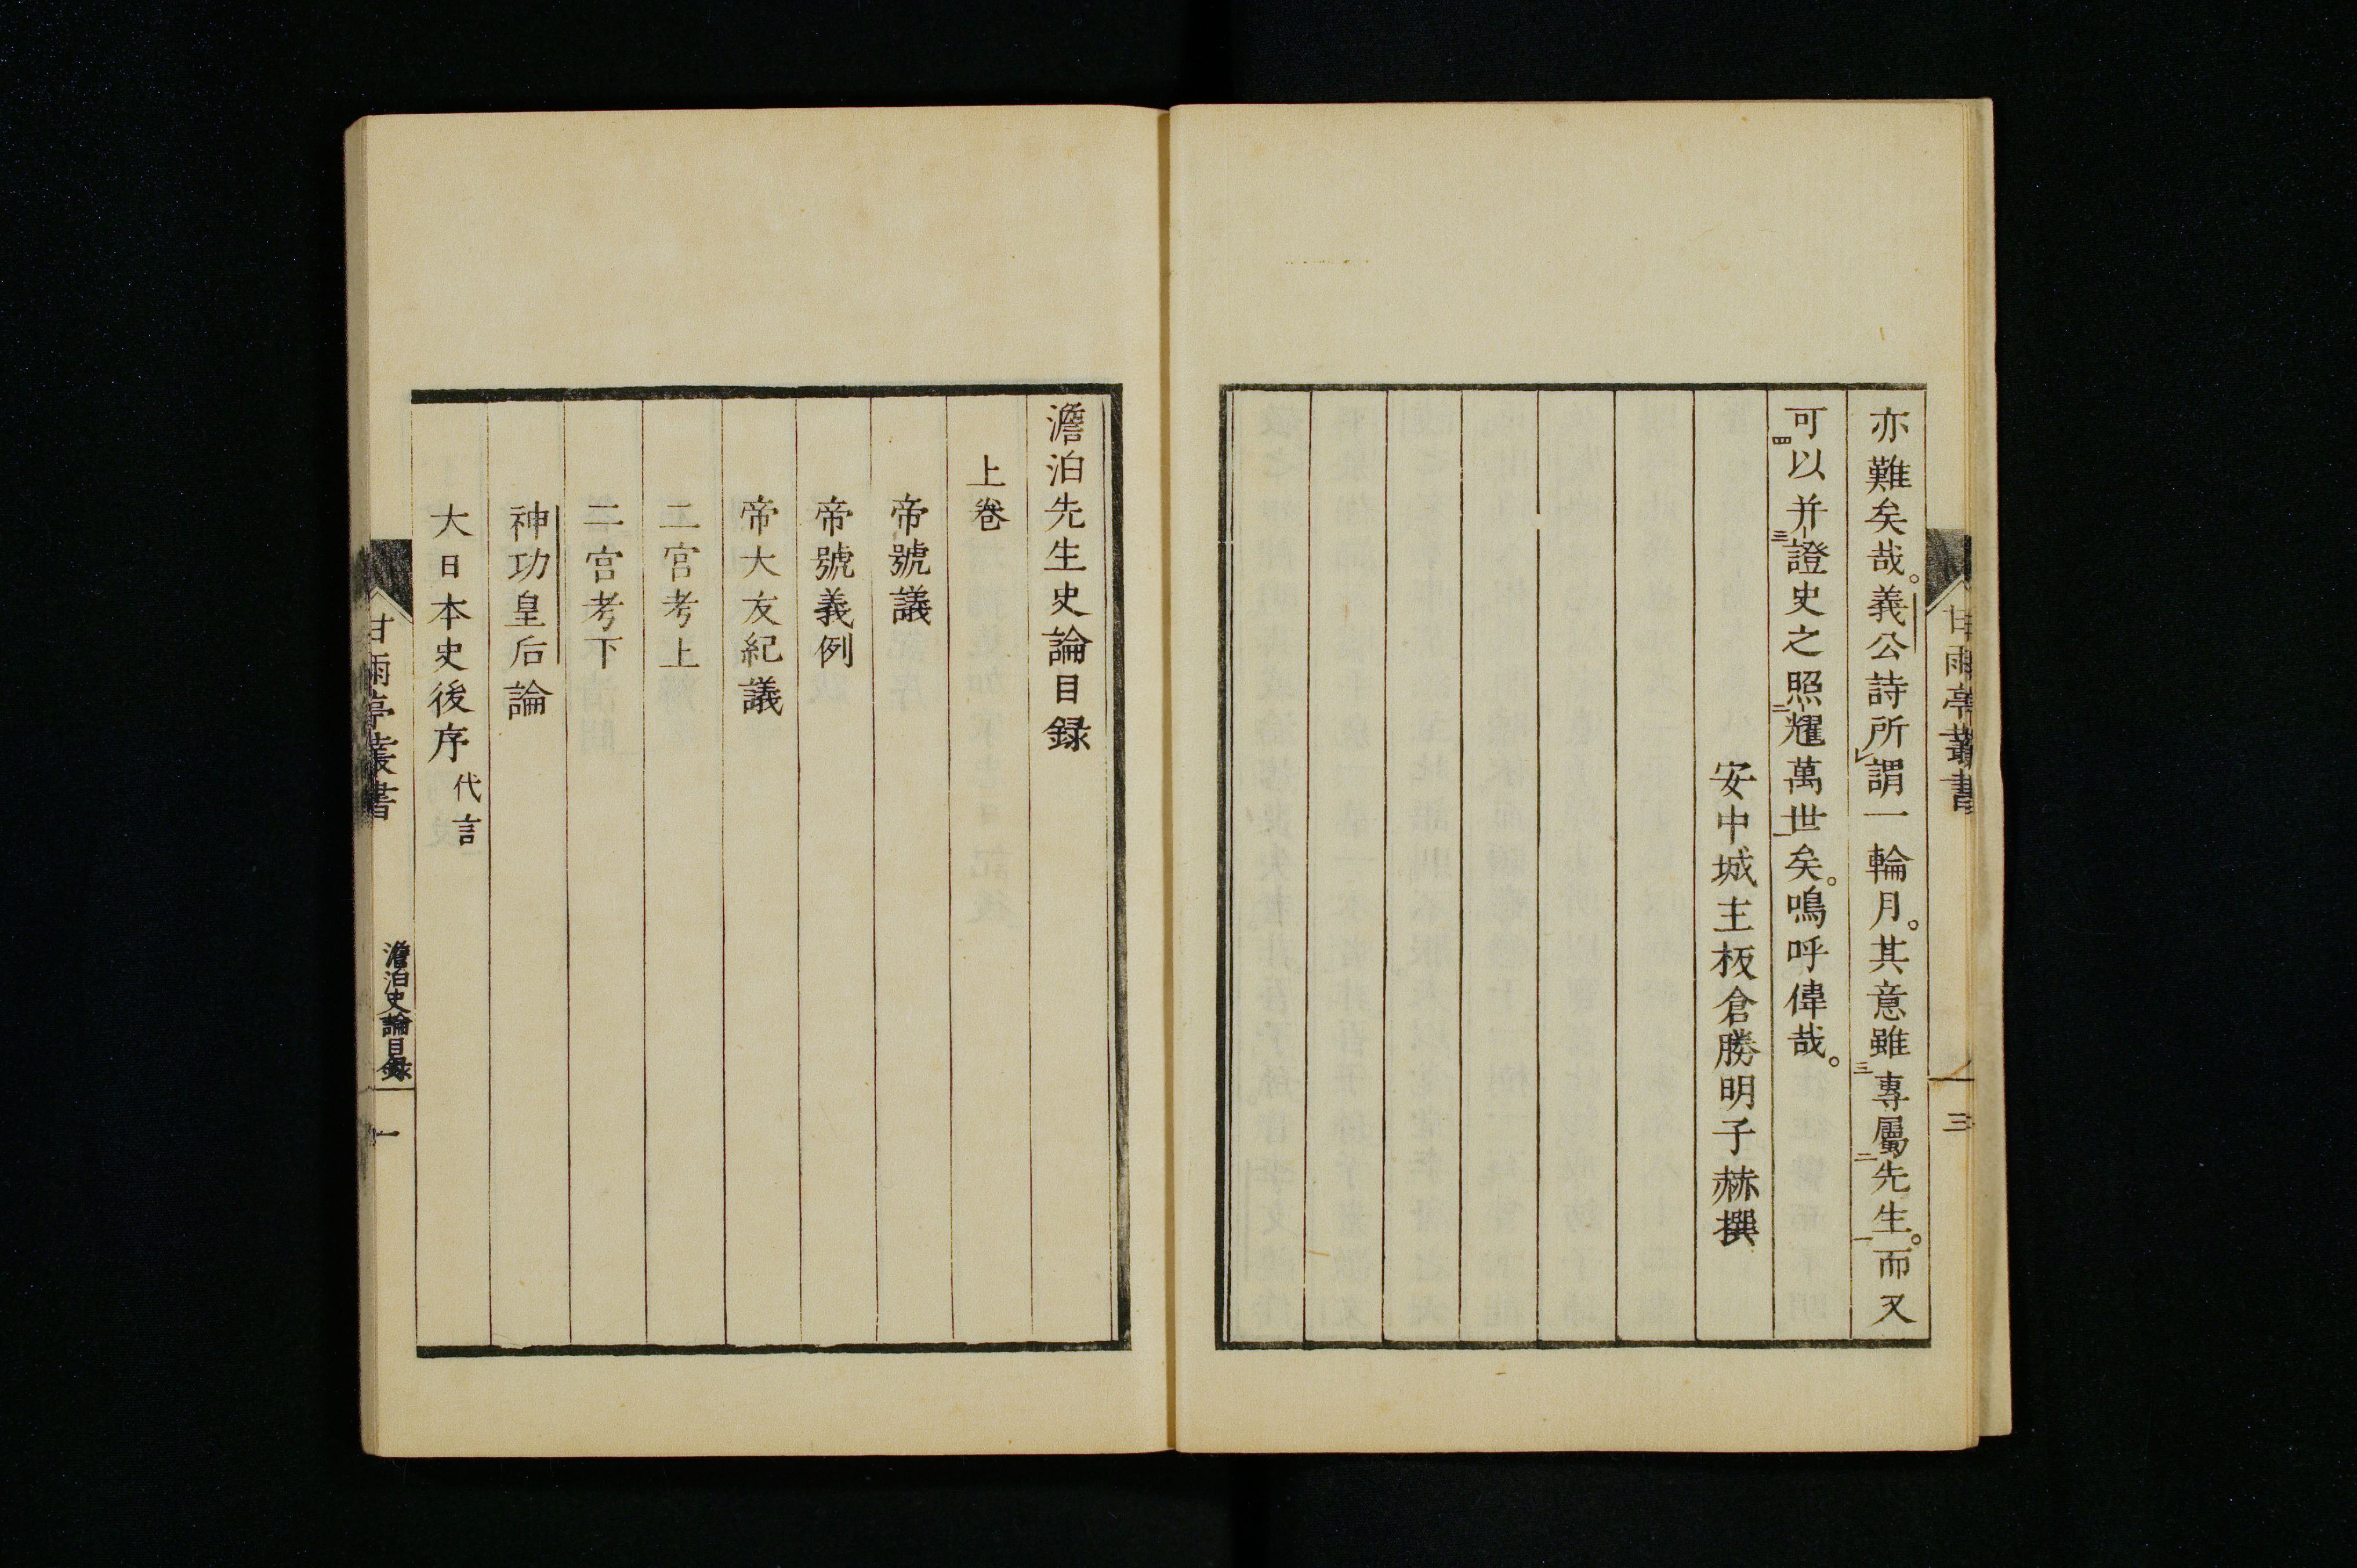 亦難矣哉。義公詩所謂一輪月。其意雖專屬先生。而又
可以并證史之照耀萬世矣。嗚呼偉哉。
安中城主板倉勝明子赫撰
甘雨亭叢書
三
澹泊先生史論目録
上卷
帝號議
帝號義例
帝大友紀議
二宮考上
二宮考下
神功皇后論
大日本史後序 代言
甘雨亭叢書
澹泊史論目録
一